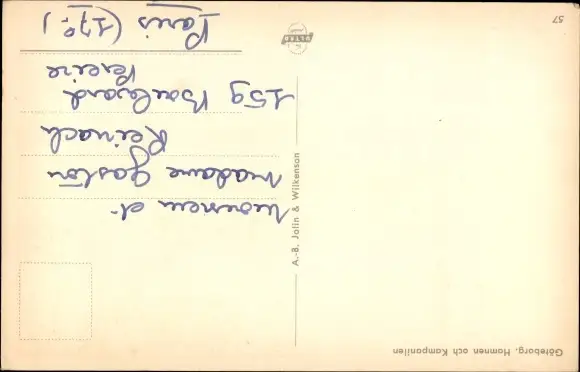 Göteborg. Hamnen och Kampanilen
A.-B. Jolin & Wilkenson
ULTRA
57
Monsieur et
Madame Gaston
Reinach
159 Boulevard
Pereire
Paris (17e.)